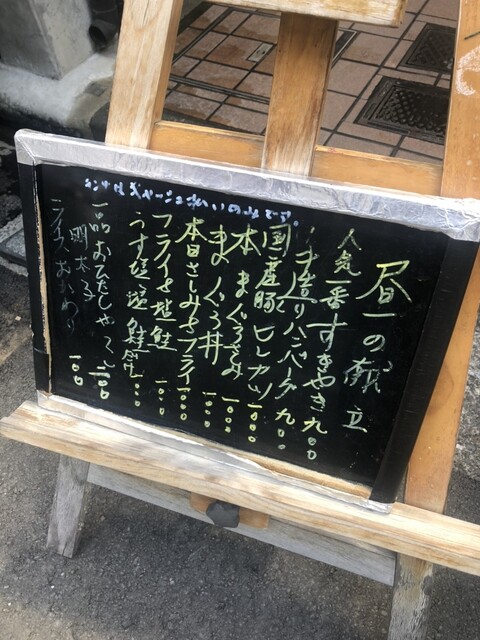 昼の献立
人気一番すきやき九〇〇
手造りハンバーグ九〇〇
国産豚ヒレカツ一〇〇〇
本まぐろさしみ一〇〇〇
まぐろ丼一〇〇〇
本日さしみとフライ一〇〇〇
フライと塩鮭一〇〇〇
うす塩塩鮭一〇〇〇
一品おひたしやっこ一〇〇
明太子一〇〇
ライスおかわり一〇〇
キャッシュ払いのみです。